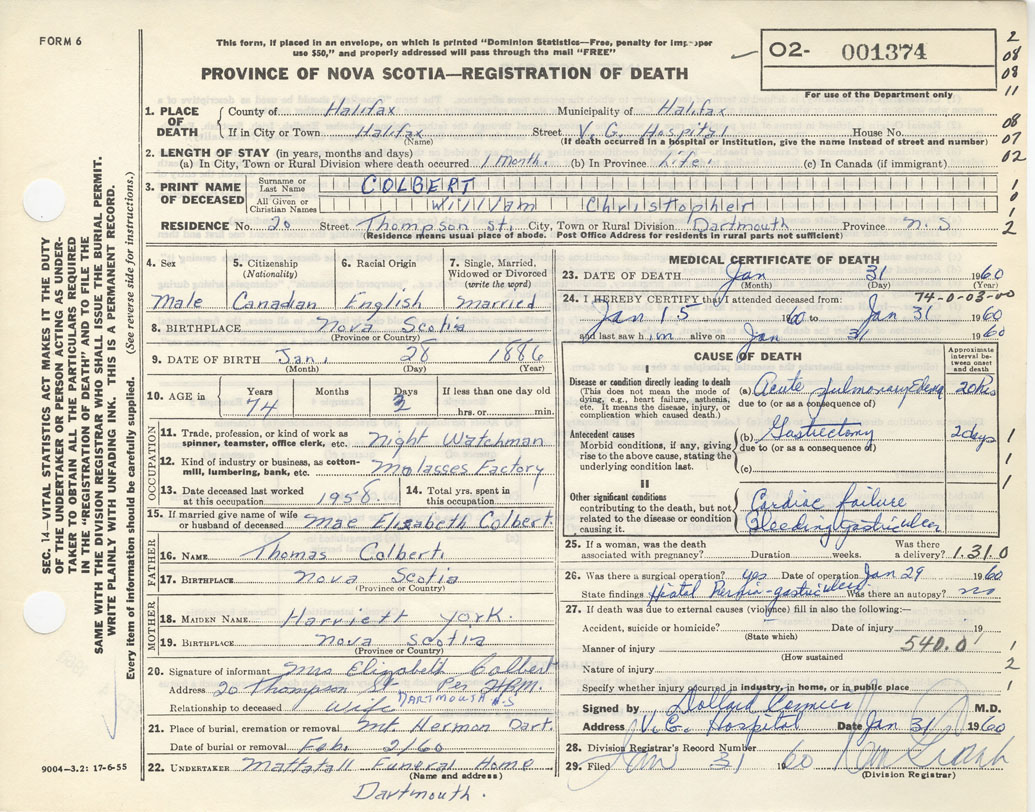 FORM 6
This form, if placed in an envelope, on which is printed "Dominion Statistics—Free, penalty for improper
use $50," and properly addressed will pass through the mail "FREE"
PROVINCE OF NOVA SCOTIA—REGISTRATION OF DEATH
02- 001374
For use of the Department only
2
08
08
11
08
07
02
1
0
1
2
SEC. 14—VITAL STATISTICS ACT MAKES IT THE DUTY
OF THE UNDERTAKER OR PERSON ACTING AS UNDER-
TAKER TO OBTAIN ALL THE PARTICULARS REQUIRED
IN THE "REGISTRATION OF DEATH" AND FILE THE
SAME WITH THE DIVISION REGISTRAR WHO SHALL ISSUE THE BURIAL PERMIT.
WRITE PLAINLY WITH UNFADING INK. THIS IS A PERMANENT RECORD.
Every item of information should be carefully supplied. (See reverse side for instructions.)
1. PLACE OF DEATH
County of Halifax Municipality of Halifax
If in City or Town Halifax Street V. G. Hospital House No.
(Name) (If death occurred in a hospital or institution, give the name instead of street and number)
2. LENGTH OF STAY (in years, months and days)
(a) In City, Town or Rural Division where death occurred 1 Month. (b) In Province Life. (c) In Canada (if immigrant)
3. PRINT NAME OF DECEASED
Surname or Last Name COLBERT
All Given or Christian Names William Christopher
RESIDENCE No. 20 Street Thompson St. City, Town or Rural Division Dartmouth Province N.S
(Residence means usual place of abode. Post Office Address for residents in rural parts not sufficient)
4. Sex
Male
5. Citizenship
(Nationality)
Canadian
6. Racial Origin
English
7. Single, Married,
Widowed or Divorced
(write the word)
Married
8. BIRTHPLACE Nova Scotia
(Province or Country)
9. DATE OF BIRTH Jan. 28 1886
(Month) (Day) (Year)
10. AGE in
Years Months Days If less than one day old
74 3 hrs. or min.
OCCUPATION
11. Trade, profession, or kind of work as
spinner, teamster, office clerk, etc. Night Watchman
12. Kind of industry or business, as cotton-
mill, lumbering, bank, etc. Molasses Factory
13. Date deceased last worked
at this occupation 1958.
14. Total yrs. spent in
this occupation
15. If married give name of wife
or husband of deceased Mae Elizabeth Colbert.
FATHER
16. NAME Thomas Colbert
17. BIRTHPLACE Nova Scotia
(Province or Country)
MOTHER
18. MAIDEN NAME Harriett York.
19. BIRTHPLACE Nova Scotia
(Province or Country)
20. Signature of informant Mrs Elizabeth Colbert
Address 20 Thompson St Per
DARTMOUTH N-S
Relationship to deceased Wife
21. Place of burial, cremation or removal Mt Hermon Dart.
Date of burial or removal Feb. 2/60
22. UNDERTAKER Mattatall Funeral Home
(Name and address)
Dartmouth.
9004-3.2: 17-6-55
MEDICAL CERTIFICATE OF DEATH
23. DATE OF DEATH Jan 31 1960
(Month) (Day) (Year)
74-0-03-00
24. I HEREBY CERTIFY that I attended deceased from:
Jan 15 1960 to Jan 31 1960
and last saw him alive on Jan 31 1960
CAUSE OF DEATH
Approximate
interval be-
tween onset
and death
I
Disease or condition directly leading to death
(This does not mean the mode of
dying, e.g., heart failure, asthenia,
etc. It means the disease, injury, or
complication which caused death.)
(a) Acute pulmonary Edema 20 hrs
due to (or as a consequence of)
Antecedent causes
Morbid conditions, if any, giving
rise to the above cause, stating the
underlying condition last.
(b) Gastrectomy 2 days
due to (or as a consequence of)
(c)
II
Other significant conditions
contributing to the death, but not
related to the disease or condition
causing it.
Cardiac failure
Bleeding gastric ulcer
1
1
1
25. If a woman, was the death
associated with pregnancy? Duration weeks. Was there
a delivery? 1.31.0
26. Was there a surgical operation? yes Date of operation Jan 29 1960
State findings Was there an autopsy? no
27. If death was due to external causes (violence) fill in also the following:—
Accident, suicide or homicide? Date of injury 19
(State which)
Manner of injury 540.0
(How sustained
1
2
Nature of injury
Specify whether injury occurred in industry, in home, or in public place 1
Signed by M.D.
Address V. G. Hospital Date Jan 31 1960
28. Division Registrar's Record Number
29. Filed Jan 31 1960
(Division Registrar)